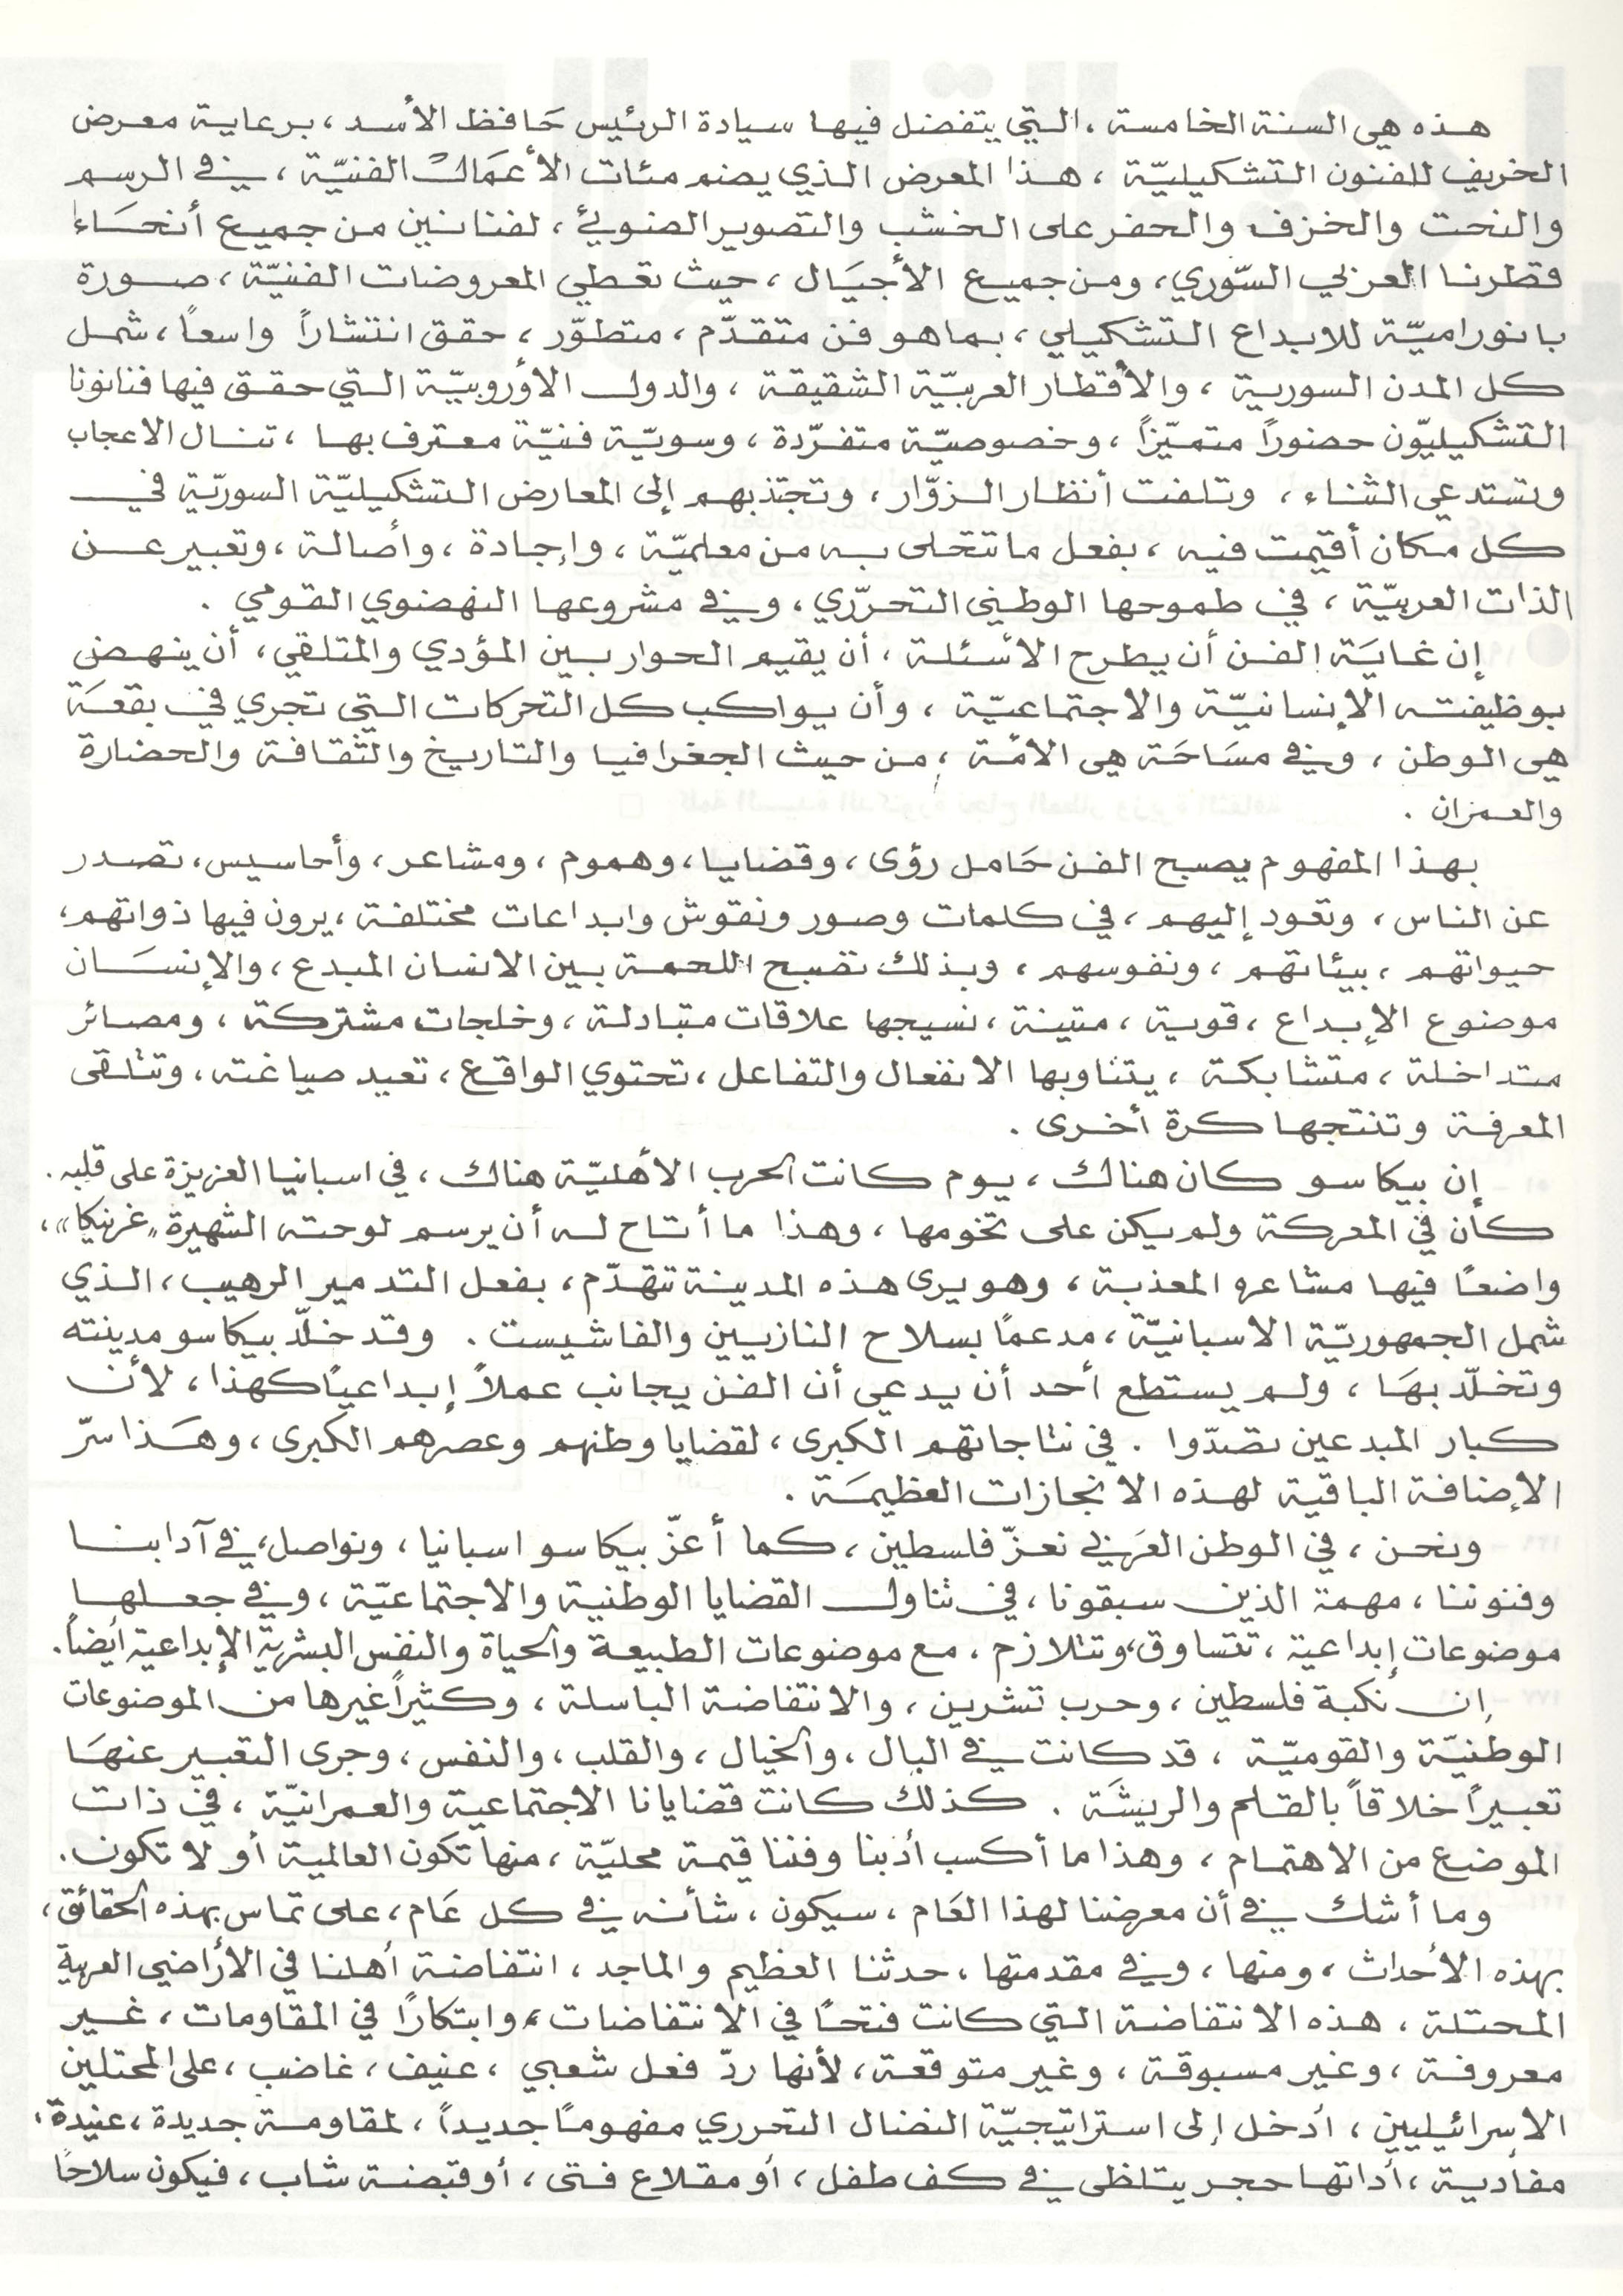 هذه هي السنة الخامسة ، التي يتفضل فيها سيادة الرئيس حَافظ الأسد ، برعاية معرض
الخريف للفنون التشكيليّة ، هذا المعرض الذي يضم مئات الأعمَال الفنيّة ، في الرسم
والنحت والخزف والحفر على الخشب والتصوير الضوئي ، لفنانين من جميع أنحَاء
قطرنا العربي السّوري ، ومن جميع الأجيَال ، حيث تعطي المعروضات الفنيّة ، صورة
بانوراميّة للابداع التشكيلي ، بما هو فن متقدّم ، متطوّر ، حقق انتشاراً واسعاً ، شمل
كل المدن السورية ، والأقطار العربيّة الشقيقة ، والدول الأوروبيّة التي حقق فيها فنانونا
التشكيليّون حضوراً متميّزاً ، وخصوصيّة متفرّدة ، وسويّة فنيّة معترف بها ، تنال الاعجاب
وتستدعي الثناء ، وتلفت أنظار الزوّار ، وتجتذبهم إلى المعارض التشكيليّة السوريّة في
كل مكان أقيمت فيه ، بفعل ما تتحلى به من معلميّة ، وإجادة ، وأصالة ، وتعبير عن
الذات العربيّة ، في طموحها الوطني التحرّري ، وفي مشروعها النهضوي القومي .
إن غايَة الفن أن يطرح الأسئلة ، أن يقيم الحوار بين المؤدي والمتلقي ، أن ينهض
بوظيفته الإنسانيّة والاجتماعيّة ، وأن يواكب كل التحركات التي تجري في بقعَة
هي الوطن ، وفي مسَاحَة هي الأمّة ، من حيث الجغرافيا والتاريخ والثقافة والحضارة
والعمران .
بهذا المفهوم يصبح الفن حَامل رؤى ، وقضايا ، وهموم ، ومشاعر ، وأحاسيس ، تصدر
عن الناس ، وتعود إليهم ، في كلمات وصور ونقوش وابداعات مختلفة ، يرون فيها ذواتهم ،
حيواتهم ، بيئاتهم ، ونفوسهم ، وبذلك تصبح اللحمة بين الانسان المبدع ، والإنسَان
موضوع الإبداع ، قوية ، متينة ، نسيجها علاقات متبادلة ، وخلجات مشتركة ، ومصائر
متداخلة ، متشابكة ، يتناوبها الانفعال والتفاعل ، تحتوي الواقع ، تعيد صياغته ، وتتلقى
المعرفة وتنتجها كرة أخرى .
إن بيكاسو كان هناك ، يوم كانت الحرب الأهليّة هناك ، في اسبانيا العزيزة على قلبه .
كان في المعركة ولم يكن على تخومها ، وهذا ما أتاح له أن يرسم لوحته الشهيرة "غرنيكا" ،
واضعاً فيها مشاعره المعذبة ، وهو يرى هذه المدينة تتهدّم ، بفعل التدمير الرهيب ، الذي
شمل الجمهوريّة الاسبانيّة ، مدعماً بسلاح النازيين والفاشيست . وقد خلّد بيكاسو مدينته
وتخلّد بهَا ، ولم يستطع أحد أن يدعي أن الفن يجانب عملاً إبداعياً كهذا ، لأن
كبار المبدعين تصدّوا . في نتاجاتهم الكبرى ، لقضايا وطنهم وعصرهم الكبرى ، وهَذا سرّ
الإضافة الباقية لهذه الانجازات العظيمَة .
ونحن ، في الوطن العَربي نعزّ فلسطين ، كما أعزّ بيكاسو اسبانيا ، ونواصل ، في آدابنا
وفنوننا ، مهمة الذين سبقونا ، في تناول القضايا الوطنية والاجتماعيّة ، وفي جعلها
موضوعات إبداعية ، تتساوق ، وتتلازم ، مع موضوعات الطبيعة والحياة والنفس البشرية الإبداعية أيضاً .
إن نكبة فلسطين ، وحرب تشرين ، والانتفاضة الباسلة ، وكثيراً غيرها من الموضوعات
الوطنيّة والقوميّة ، قد كانت في البال ، والخيال ، والقلب ، والنفس ، وجرى التعبير عنهَا
تعبيراً خلاقاً بالقلم والريشَة . كذلك كانت قضايانا الاجتماعية والعمرانيّة ، في ذات
الموضع من الاهتمام ، وهذا ما أكسب أدبنا وفننا قيمة محليّة ، منها تكون العالمية أو لا تكون .
وما أشك في أن معرضنا لهذا العَام ، سيكون ، شأنه في كل عَام ، على تماس بهذه الحقائق ،
بهذه الأحداث ، ومنها ، وفي مقدمتها ، حدثنا العظيم والماجد ، انتفاضة أهلنا في الأراضي العربية
المحتلة ، هذه الانتفاضة التي كانت فتحاً في الانتفاضات ، وابتكاراً في المقاومات ، غير
معروفة ، وغير مسبوقة ، وغير متوقعة ، لأنها ردّ فعل شعبي ، عنيف ، غاضب ، على المحتلين
الاسرائيليين ، أدخل إلى استراتيجيّة النضال التحرري مفهوماً جديداً ، لمقاومة جديدة ، عنيدة ،
مفأدية ، أداتها حجر يتلظى في كف طفل ، أو مقلاع فتى ، أو قبضة شاب ، فيكون سلاحاً